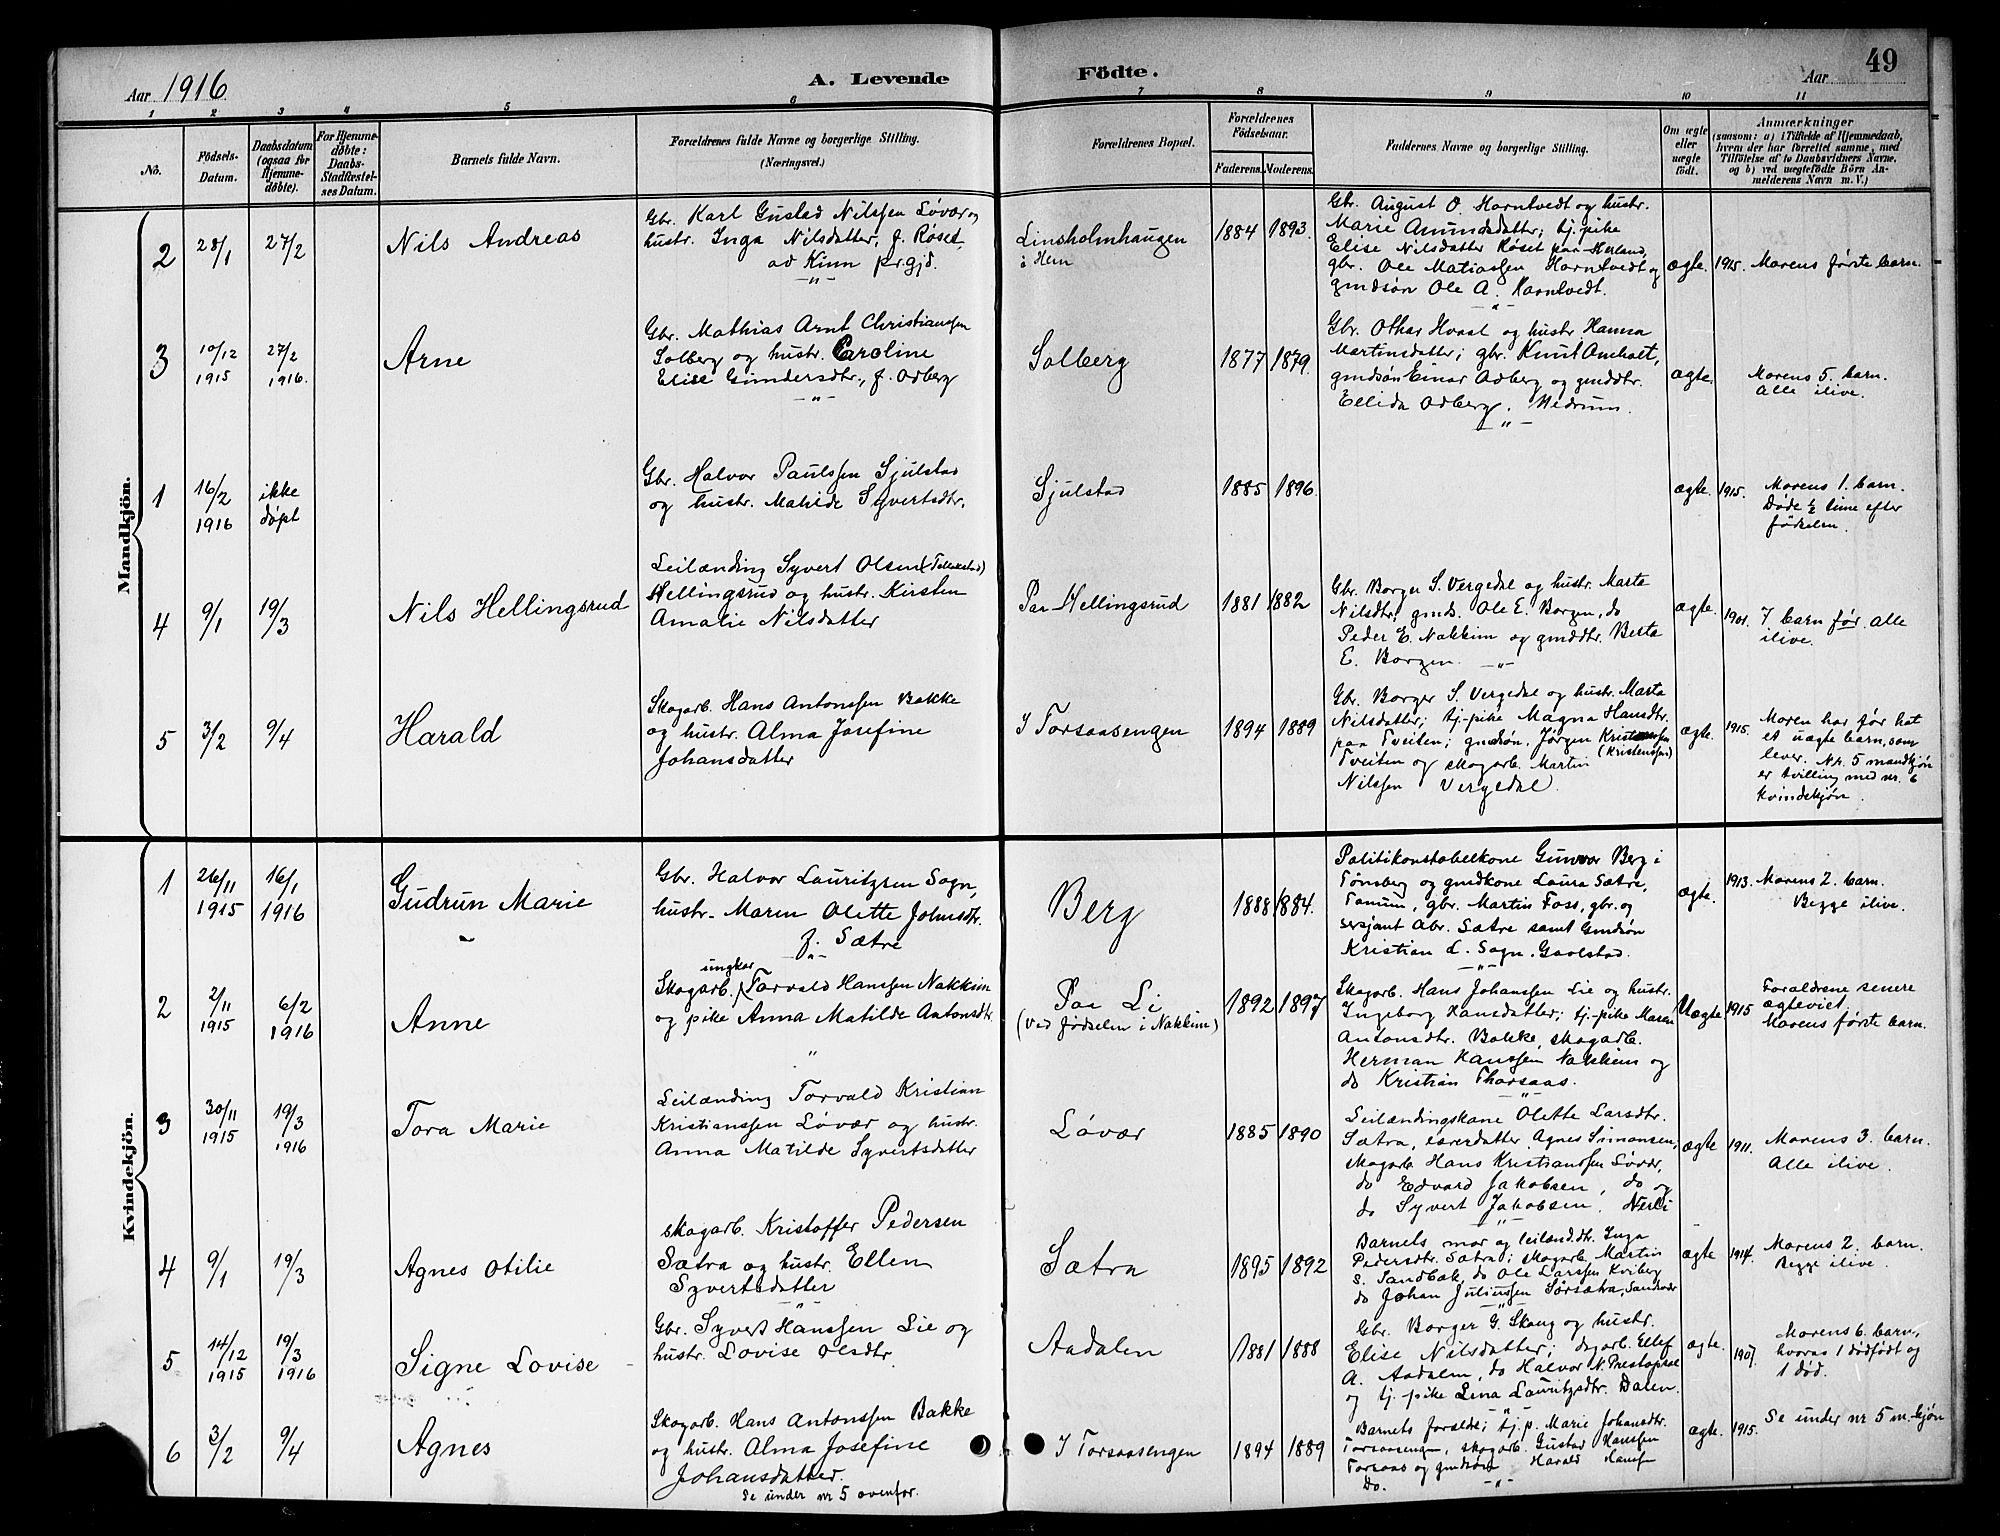 Aar 1916
A. Levende
Födte.
Aar
49
1 2 3 4 5 6 7 8 9 10 11
No.
Födsels-
Datum.
Daabsdatum
(ogsaa for
Hjemme-
døbte).
For Hjemme-
døbte:
Daabs-
Stadfæstel-
ses Datum.
Barnets fulde Navn.
Forældrenes fulde Navne og borgerlige Stilling.
(Næringsvei.)
Forældrenes Bopæl.
Forældrenes
Födselsaar.
Faderens. Moderens.
Faddernes Navne og borgerlige Stilling.
Om ægte
eller
uægte
født.
Anmærkninger
(saasom: a) i Tilfælde af Hjemmedaab,
hvem der har forrettet samme, med
Tilføielse af to Daabsvidners Navne,
og b) ved uægtefödte Börn An-
melderens Navn m. V.)
Mandkjön.
2
28/1
27/2
Nils Andreas
Gbr. Karl Gustad Nilssen Løvar og
hustr. Inga Nilsdatter, f. Røset
av Kinn prgjd.
-"-
Linsholmhaugen
i Hem
1884 1893.
Gbr. August O. Horntvedt og hustr.
Marie Amundsdatter; tj.pike
Elise Nilsdatter Røset paa Herland,
gbr. Ole Matiassen Horntvedt og
gmdsøn Ole A. Horntvedt.
-"-
ægte.
1915. Morens første barn.
3
10/12
1915
27/2
1916.
Arne
Gbr. Mathias Arnt Christianssen
Solberg og hustr. Caroline
Elise Gundersdtr., f. Odberg
-"-
Solberg
1877 1879.
Gbr. Othar Hvaal og hustr Hanna
Martinsdatter; gbr. Knut Omholt,
gmdsøn Einar Odberg og gmddtr.
Ellida Odberg. Hedrum.
-"-
ægte.
Morens 5. barn.
Alle ilive.
1
16/2
1916
ikke
døpt
Gbr. Halvor Paulssen Gjulstad
og hustr. Matilde Syvertsdtr.
Gjulstad
1885 1896.
ægte.
1915. Morens 1. barn.
Døde 1/2 time efter
fødselen.
4
9/1
19/3
Nils Hellingsrud
Leilænding Syvert Olsen
Hellingsrud og hustr. Kirsten
Amalie Nilsdatter
Paa Hellingsrud
1881 1882
Gbr. Borger S. Vergedal og hustr. Marte
Nilsdtr, gmds. Ole E. Borgen, do
Peder E. Nakkim og gmddtr. Berta
E. Borgen. -"-
ægte.
1901. 7 barn før. Alle
ilive.
5
3/2
9/4
Harald
Skogarb. Hans Antonssen Bakke
og hustr. Alma Josefine
Johansdatter
I Torsaasengen
1894 1889
Gbr. Borger S. Vergedal og hustr. Marta
Nilsdatter; tj.-pike Magna Hansdtr.
paa Tveiten; gmdsøn. Jørgen
(Kristenssen)
Tveiten og skogarb. Martin
Nilssen Vergedal.
ægte.
1915. Moren har før hat
et uægte barn, som
lever. Nr. 5 mandkjøn
er tvilling med nr. 6
kvindekjøn.
Kvindekjön.
1
26/11
1915
16/1
1916
Gudrun Marie
Gbr. Halvor Lauritzsen Sogn,
hustr. Maren Olette Johnsdtr.
f. Sætre
-"-
Berg
1888 1884.
Politikonstabelkone Gunvor Berg i
Tønsberg og gmdkone Laura Sætre,
Tanum, gbr. Martin Foss, gbr. og
sersjant Abr. Sætre samt Gmdsøn
Kristian L. Sogn. Gaolstad.
-"-
ægte.
1913. Morens 2. barn.
Begge ilive.
2
2/11
1915
6/2
1916
Anne
ungkar
Skogarb. Torvald Hanssen Nakkim
og pike Anna Matilde Antonsdtr.
"
Paa Li
(ved fødselen i Nakkim)
1892 1897
Skogarb. Hans Johanssen Lie og hustr.
Ingeborg Hansdatter; tj.-pike Maren
Antonsdtr. Bakke, skogarb.
Herman Hanssen Nakkim og
do Kristian Thorsaas.
"
Uægte
1915 Forældrene senere
egteviet.
Morens første barn.
3
30/11
1915
19/3
1916
Tora Marie
Leilænding Torvald Kristian
Kristianssen Løvar og hustr.
Anna Matilde Syvertsdatter
Løvar
1885 1890
Leilændingskone Olette Larsdtr.
Sætra, eierdatter Agnes Simonsen,
skogarb Hans Kristianssen Løvar,
do Edvard Jakobsen, do og
do Syvert Jakobsen, Nerli
"
ægte
1911. Morens 3. barn.
Alle ilive.
4
9/1
19/3
Agnes Otilie
Skogarb. Kristoffer Pedersen
Sætra og hustr. Ellen
Syvertsdatter
-"-
Sætra
1895 1892
Barnets mor og leiland.dt. Inga
Pedersdtr. Sætra; skogarb Martin
S. Sandbak, do Ole Larssen Kviberg
do Johan Juliussen Sørsætra, Sandsvær
"
ægte
1914. Morens 2. barn.
Begge ilive.
5
14/12
1915
19/3
1916
Signe Lovise
Gbr. Syvert Hanssen Lie og
hustr. Lovise Olsdtr.
Aadalen
1881 1888
Gbr. Borger G. Skaug og hustr.
Elise Nilsdatter; dgarb. Ellef
A. Aadalen, do Halvor N. Prestaprae
og tj. pike Lina Lauritzsdtr. Dalen.
-"-
ægte.
1907. Morens 6. barn,
hvorav 1 dødfødt og
1 død.
6
3/2
9/4
Agnes
Skogarb. Hans Antonssen Bakke
og hustr. Alma Josefine
Johansdatter.
Se under nr 5 ovenfor.
I Torsaasengen
1894 1889
Barnets foreldr; tj.p. Marie Johansdtr.
Torsaasengen, skogarb. Gustav Hanssen
Torsaas og gmdsøn Harald Hanssen
Do. -"-
ægte.
1915. Se under nr 5 m.kjøn